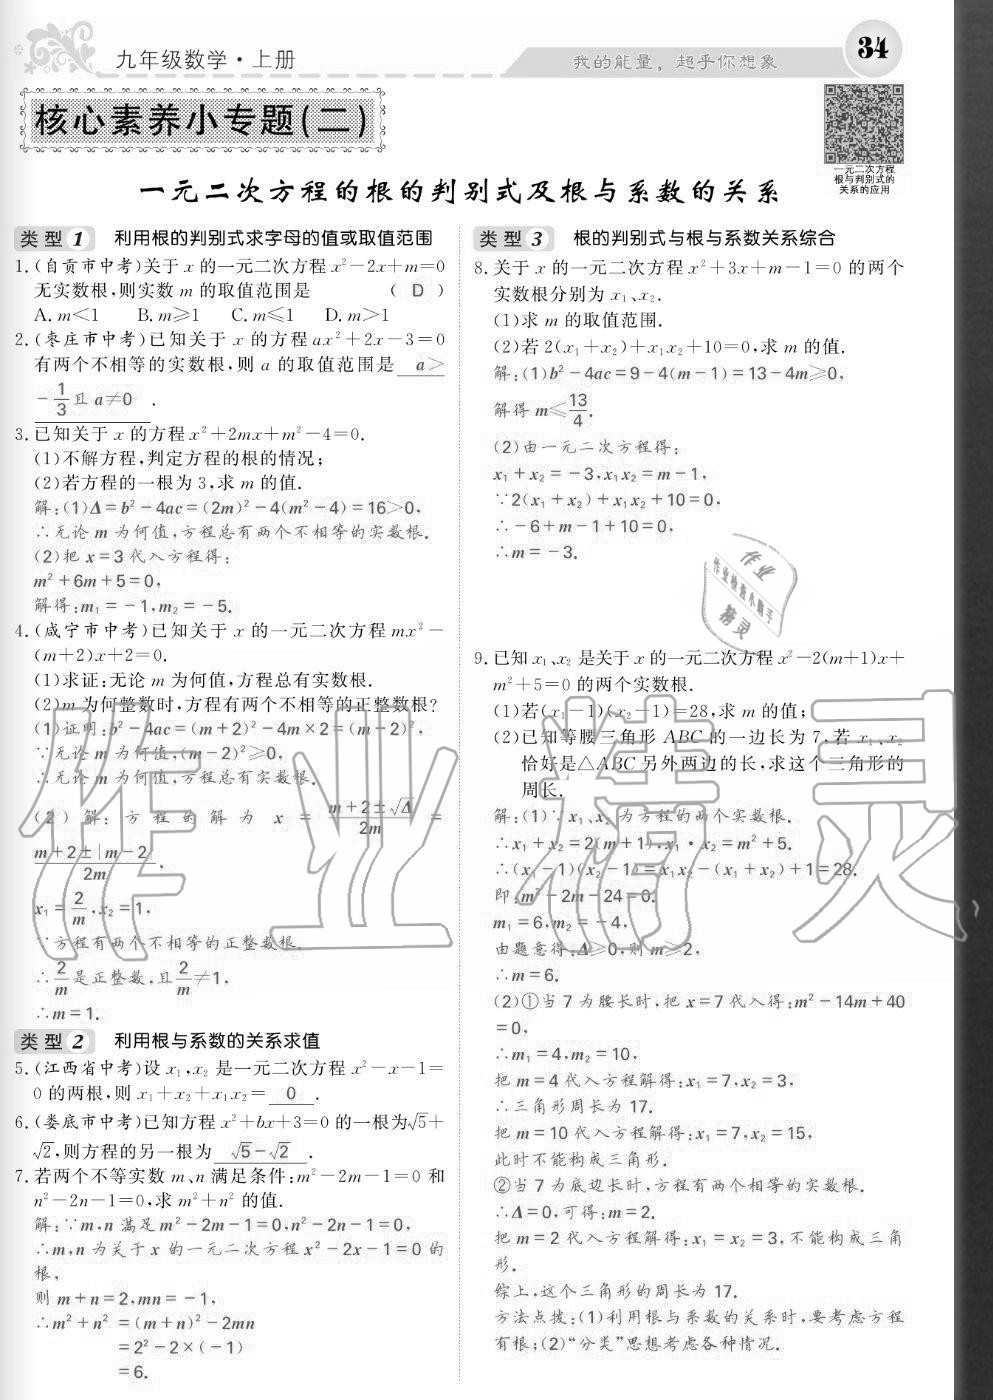 九年级数学·上册
我的能量，超乎你想象
34
核心素养小专题(二)
一元二次方程
根与判别式的
关系的应用
一元二次方程的根的判别式及根与系数的关系
类型1 利用根的判别式求字母的值或取值范围
1.(自贡市中考)关于x的一元二次方程x²-2x+m=0
无实数根,则实数m的取值范围是 ( D )
A.m<1 B.m≥1 C.m≤1 D.m>1
2.(枣庄市中考)已知关于x的方程ax²+2x-3=0
有两个不相等的实数根,则a的取值范围是 a>
-1/3且a≠0 .
3.已知关于x的方程x²+2mx+m²-4=0.
(1)不解方程,判定方程的根的情况;
(2)若方程的一根为3,求m的值.
解:(1)Δ=b²-4ac=(2m)²-4(m²-4)=16>0,
∴无论m为何值,方程总有两个不相等的实数根.
(2)把x=3代入方程得:
m²+6m+5=0,
解得:m₁=-1,m₂=-5.
4.(咸宁市中考)已知关于x的一元二次方程mx²-
(m+2)x+2=0.
(1)求证:无论m为何值,方程总有实数根.
(2)m为何整数时,方程有两个不相等的正整数根?
(1)证明:b²-4ac=(m+2)²-4m×2=(m-2)²,
∵无论m为何值,(m-2)²≥0,
∴无论m为何值,方程总有实数根.
(2)解:方程的解为x=(m+2±√Δ)/2m=
(m+2±|m-2|)/2m,
x₁=2/m,x₂=1,
∵方程有两个不相等的正整数根.
∴2/m是正整数,且2/m≠1,
∴m=1.
类型2 利用根与系数的关系求值
5.(江西省中考)设x₁,x₂是一元二次方程x²-x-1=
0的两根,则x₁+x₂+x₁x₂= 0 .
6.(娄底市中考)已知方程x²+bx+3=0的一根为√5+
√2,则方程的另一根为 √5-√2 .
7.若两个不等实数m、n满足条件:m²-2m-1=0和
n²-2n-1=0,求m²+n²的值.
解:∵m,n满足m²-2m-1=0,n²-2n-1=0,
∴m,n为关于x的一元二次方程x²-2x-1=0的
根,
则m+n=2,mn=-1,
∴m²+n²=(m+n)²-2mn
=2²-2×(-1)
=6.
类型3 根的判别式与根与系数关系综合
8.关于x的一元二次方程x²+3x+m-1=0的两个
实数根分别为x₁、x₂.
(1)求m的取值范围.
(2)若2(x₁+x₂)+x₁x₂+10=0,求m的值.
解:(1)b²-4ac=9-4(m-1)=13-4m≥0,
解得m≤13/4.
(2)由一元二次方程得:
x₁+x₂=-3,x₁x₂=m-1,
∵2(x₁+x₂)+x₁x₂+10=0,
∴-6+m-1+10=0,
∴m=-3.
作业
作业检查小助手
精灵
9.已知x₁、x₂是关于x的一元二次方程x²-2(m+1)x+
m²+5=0的两个实数根.
(1)若(x₁-1)(x₂-1)=28,求m的值;
(2)已知等腰三角形ABC的一边长为7,若x₁、x₂
恰好是△ABC另外两边的长,求这个三角形的
周长.
解:(1)∵x₁、x₂为方程的两个实数根.
∴x₁+x₂=2(m+1),x₁·x₂=m²+5.
∴(x₁-1)(x₂-1)=x₁x₂-(x₁+x₂)+1=28.
即:m²-2m-24=0.
m₁=6,m₂=-4,
由题意得:Δ≥0,则m≥2,
∴m=6.
(2)①当7为腰长时,把x=7代入得:m²-14m+40
=0,
∴m₁=4,m₂=10,
把m=4代入方程解得:x₁=7,x₂=3,
∴三角形周长为17.
把m=10代入方程解得:x₁=7,x₂=15,
此时不能构成三角形.
②当7为底边长时,方程有两个相等的实数根.
∴Δ=0,可得:m=2.
把m=2代入方程解得:x₁=x₂=3,不能构成三角
形.
综上,这个三角形的周长为17.
方法点拨:(1)利用根与系数的关系时,要考虑方程
有根;(2)“分类”思想考虑各种情况.
作业精灵